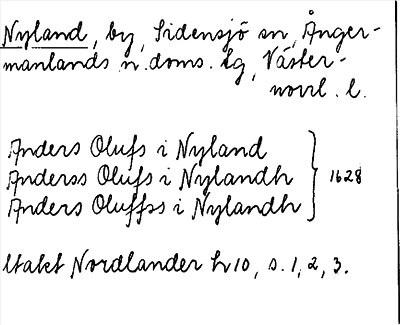 Nyland, by, Sidensjö sn, Ånger-
manlands n. doms. lg, Väster-
norrl. l.
Anders Olufs i Nyland
Anderss Olufs i Nylandh } 1628
Anders Oluffss i Nylandh
Utakt Nordlander h 10, s. 1, 2, 3.